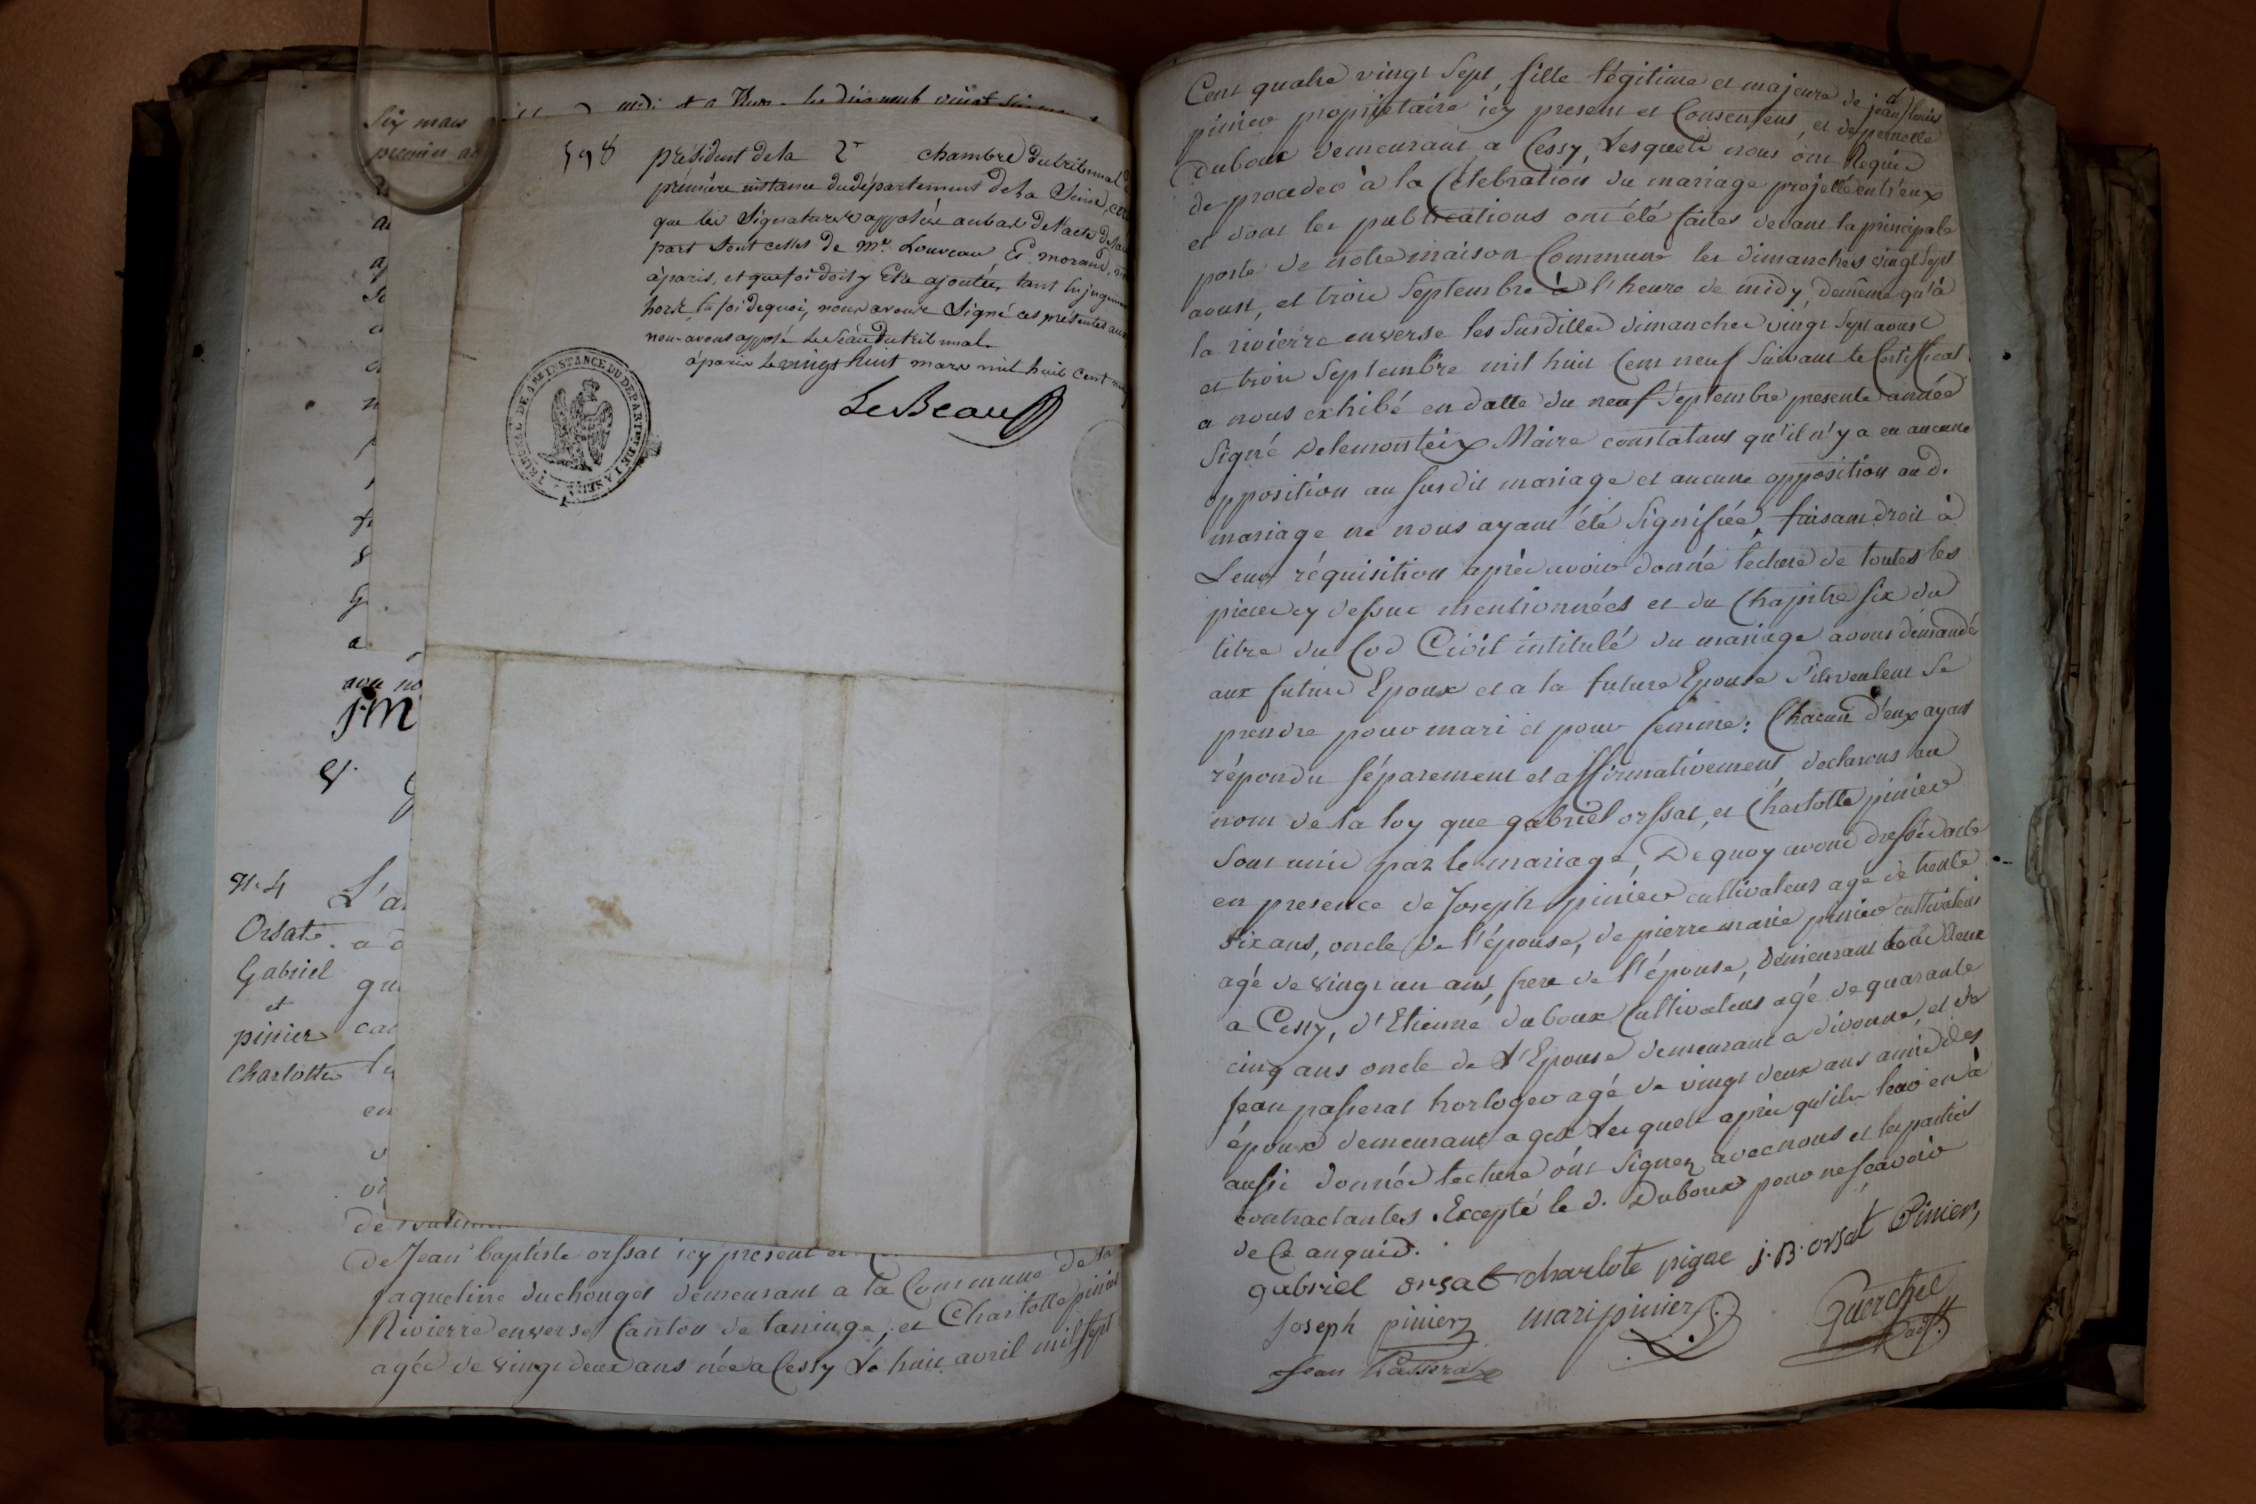 Six mars
premier
598 président de la 2e chambre du tribunal
première instance du département de la Seine,
que les Signatures apposées au bas de l'acte
part Sont celles de Mr. Louveau Et morand,
à paris, et que foi doit y Etre ajoutée, tant
hors. En foi de quoi, nous avons Signé ces présentes
nous avons apposé le Sceau du tribunal
à paris le vingt huit mars mil huit Cent
LeBeau
TRIBUNAL DE 1ERE INSTANCE DU DEPARTEMT DE LA SEINE
No 4
Orsat
Gabriel
et
pinier
Charlotte
L'a
de Jean baptiste orssat icy present et
jaqueline duchouget demeurant a la Commune de la
Rivierre enverse Canton de taninge, et Charlotte pinier
agée de vingt deux ans née a Cessy Le huit avril mil sept
Cent quatre vingt Sept, fille légitime et majeure de jean louis
pinier propriétaire icy present et Consentent, et de pernette
Duboux demeurant a Cessy, Lesquels nous ont Requis
de proceder à la Célébration du mariage projetté entr'eux
et dont les publications ont été faites devant la principale
porte de notre maison Commune les dimanches vingt Sept
aoust, et trois Septembre à l'heure de midy, de même qu'à
la rivierre enverse les Susdittes dimanches vingt Sept aoust
et trois Septembre mil huit Cent neuf Suivant le Certifficat
a nous exhibé en datte du neuf Septembre presente année
Signé Delemonteix Maire constatant qu'il n'y a eu aucune
opposition au susdit mariage et aucune opposition aud.
mariage ne nous ayant été Signifiée faisant droit à
Leur réquisition après avoir donné lecture de toutes les
pieces cy dessus mentionnées et du Chapitre six du
titre du Cod Civil intitulé du mariage avons demandé
aux futurs Epoux et a la future Epouse s'ils veulent se
prendre pour mari et pour femme : Chacun d'eux ayant
répondu séparement et affirmativement declarons au
nom de la loy que gabriel orssat et Charlotte pinier
Sont unis par le mariage, De quoy avons dressé acte
en presence de Joseph pinier cultivateur agé de trente
six ans, oncle de l'épouse, de pierre marie pinier cultivateur
agé de vingt un ans, frere de l'épouse, demeurant tous deux
a Cessy, d'Etienne duboux Cultivateur agé de quarante
cinq ans oncle de L'Epouse demeurant a divonne, et de
Jean passerat horloger agé de vingt deux ans amis des
époux demeurant a gex Lesquels après qu'il leur en a
aussi donnée lecture ont Signez avec nous et les parties
contractantes. Excepté le d. Duboux pour ne sçavoir
de Ce enquis.
gabriel orsat charlote pigne j. B. orsat Pinier
Joseph pinier mari pinier
Jean Passerat